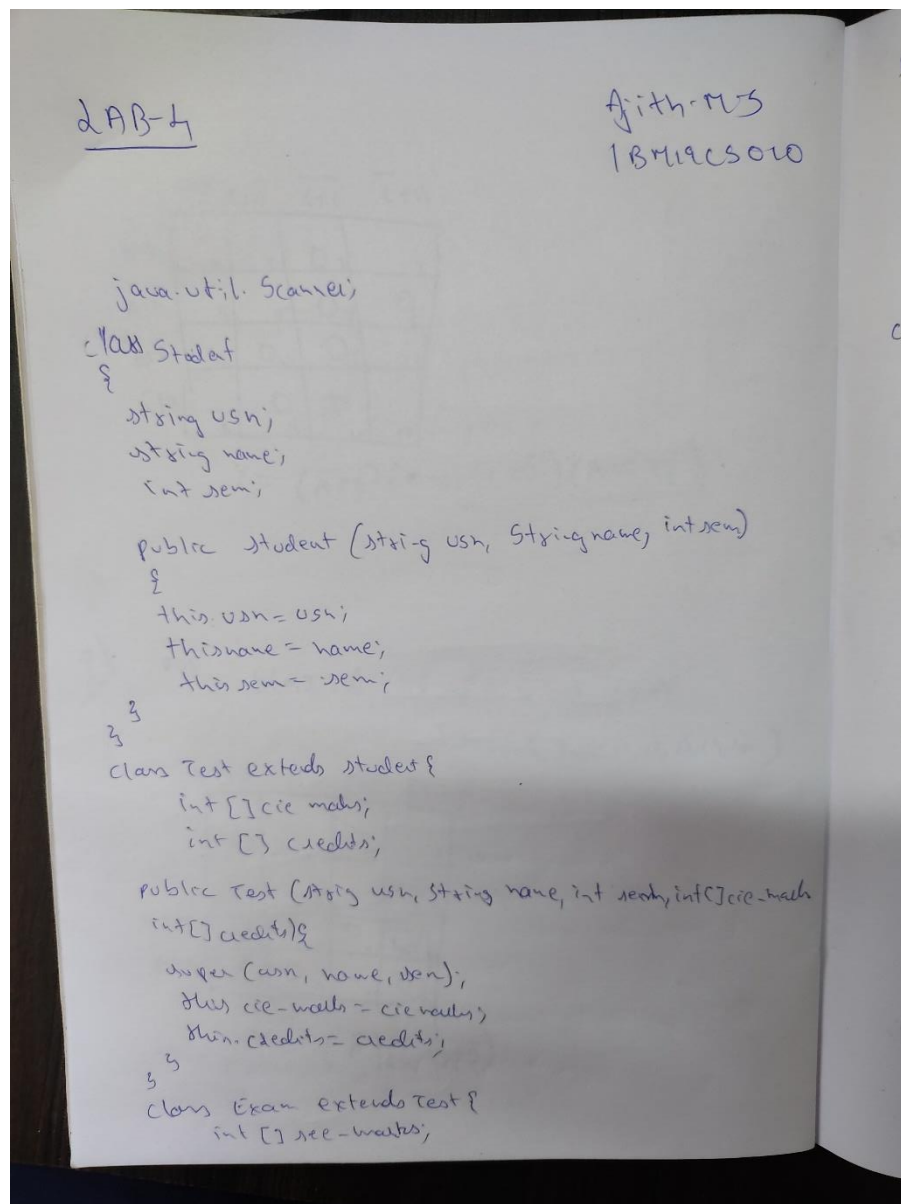 LAB-4
Ajith.M.S
1BM19CS010
java.util.Scanner;
class Student
{
string usn;
string name;
int sem;
public student (string usn, String name, int sem)
{
this.usn = usn;
thisname = name;
this sem = sem;
}
}
class Test extends student {
int [] cie marks;
int [] credits;
public Test (strig usn, string name, int sem, int [] cie-marks
int [] credits) {
super (usn, name, sem);
this cie-marks = cie marks;
this.credits = credits;
}
}
class Exam extends Test {
int [] see-marks;